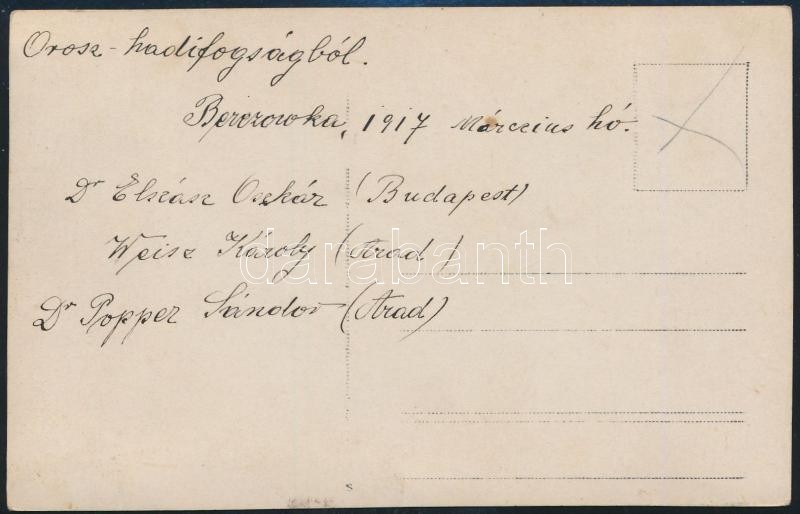 Orosz - hadifogságból.
Berezowka, 1917 Márczius hó.
Dr Elszász Oszkár (Budapest)
Weisz Károly (Arad)
darabanth
Dr Popper Sándor (Arad)